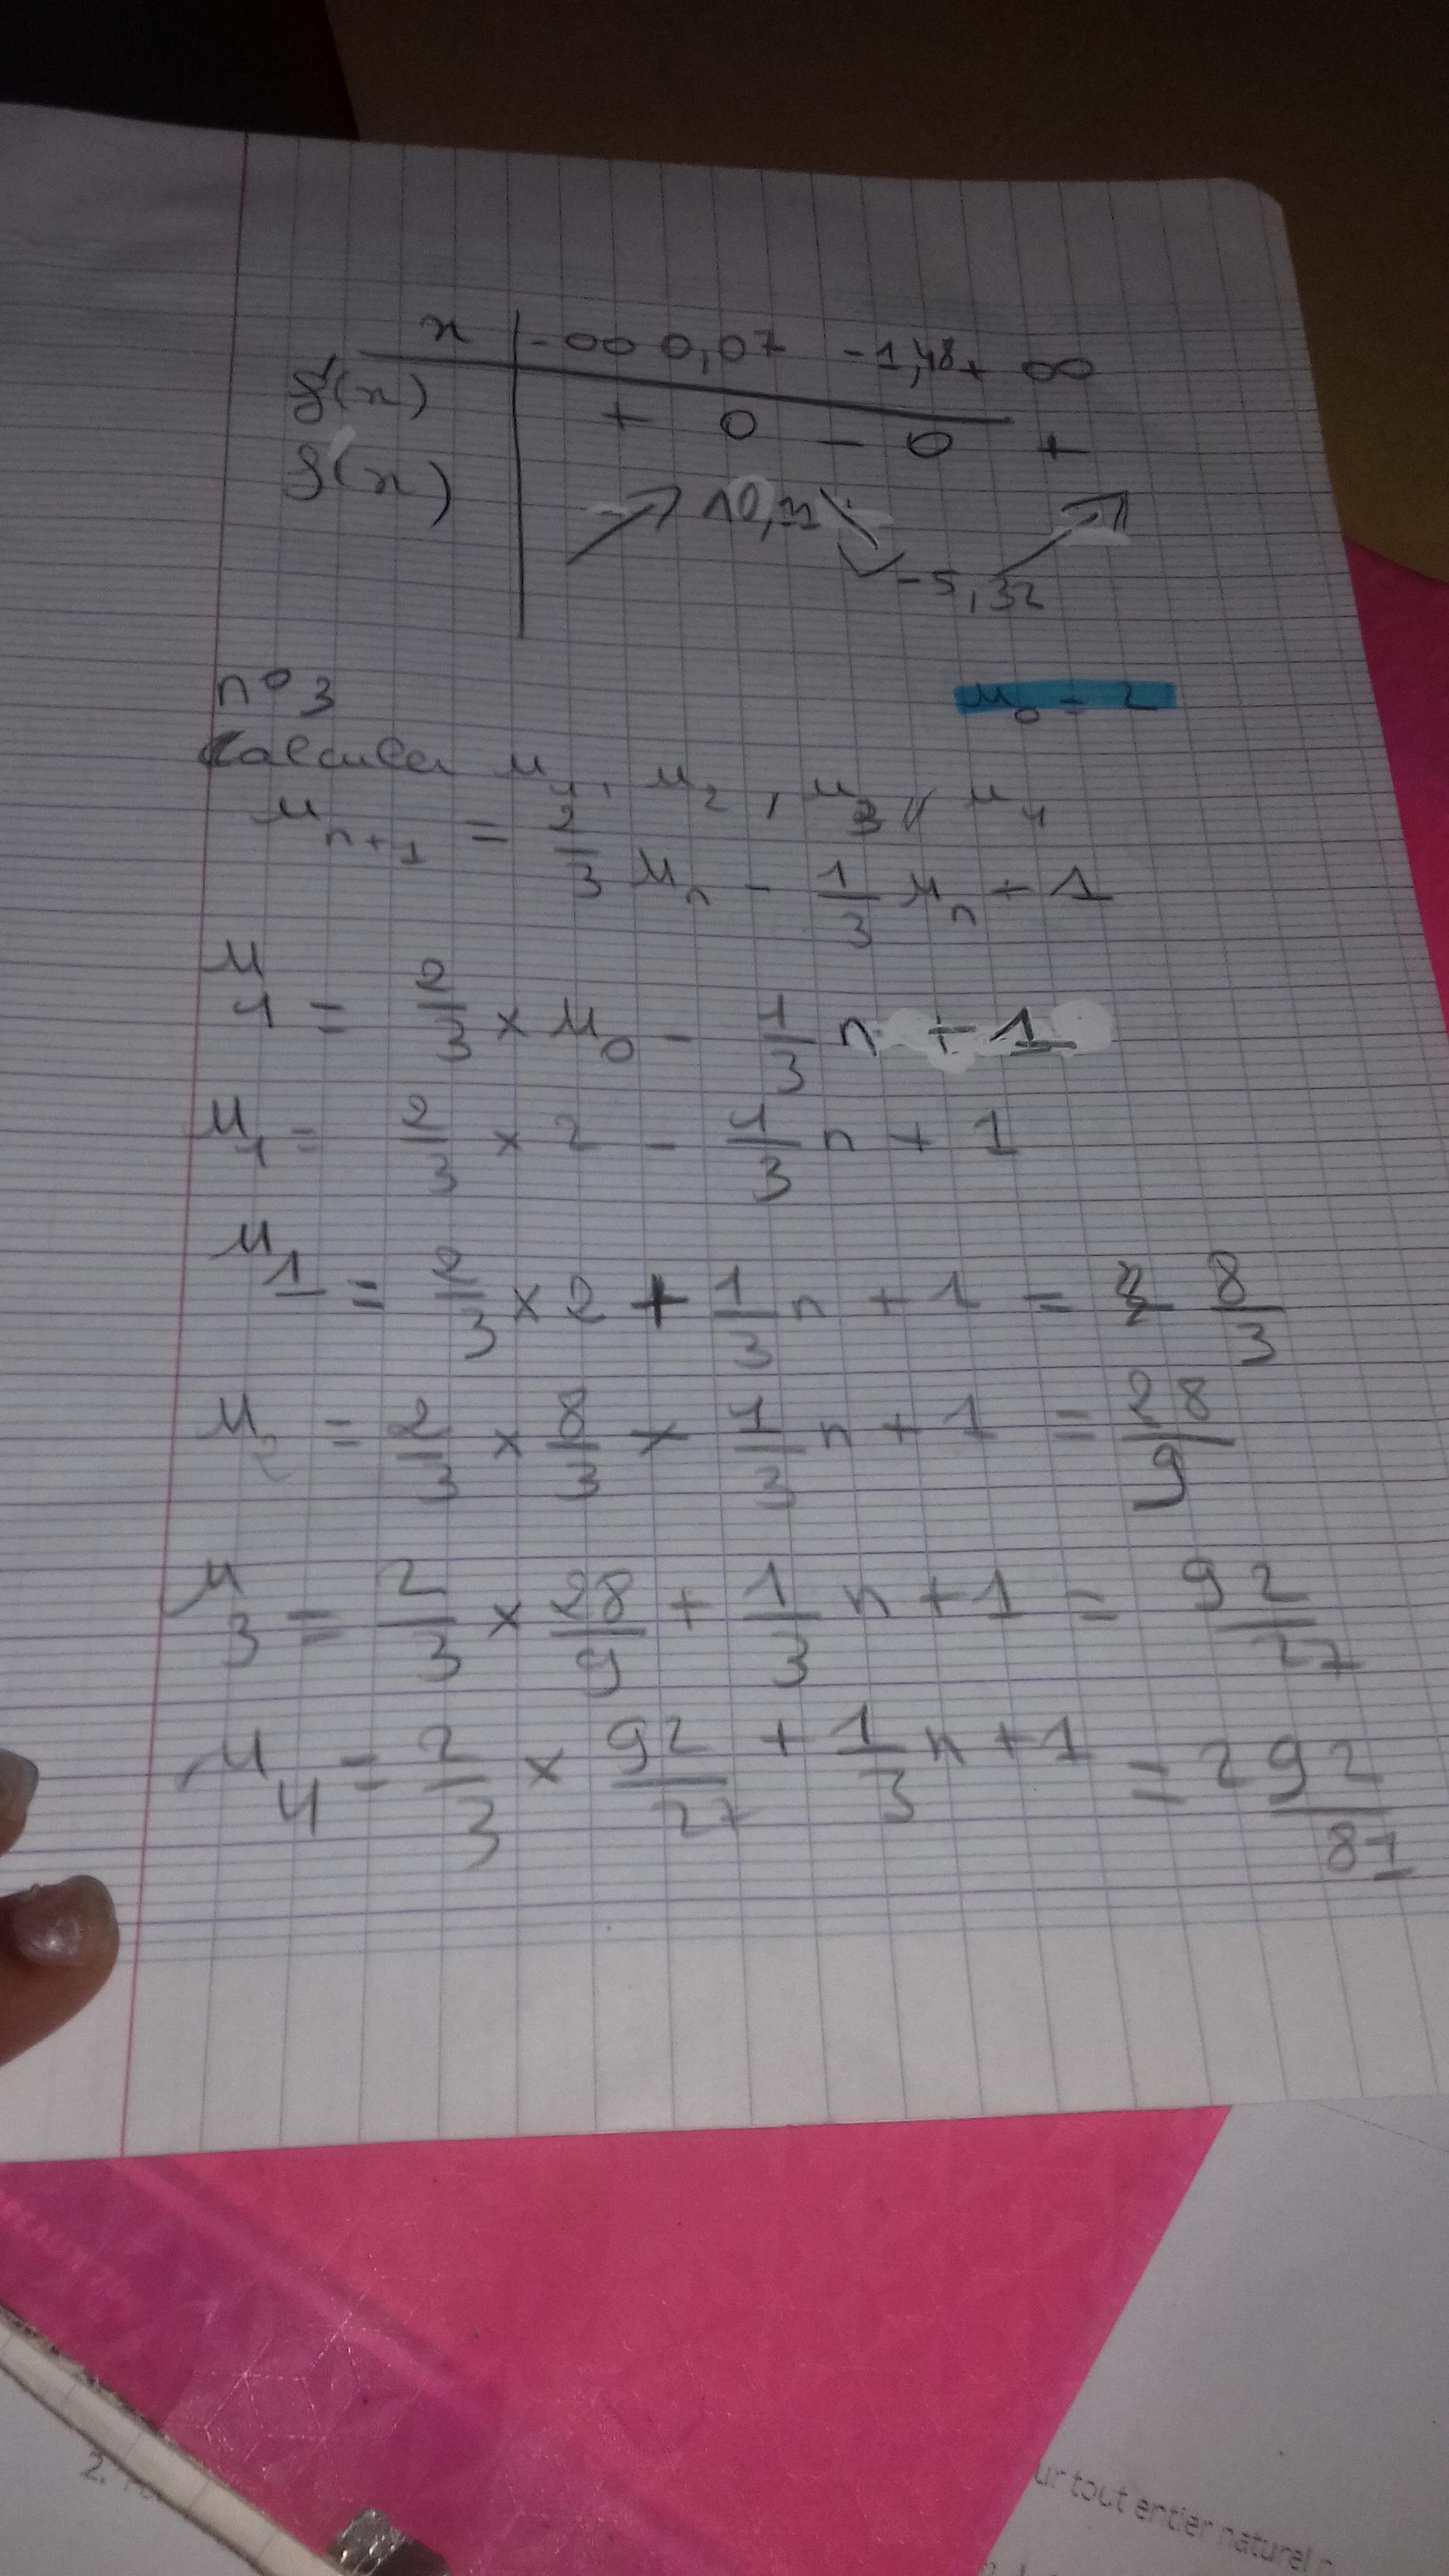 x | -∞ 0,07 -1,48 + ∞
f'(x) | + 0 - 0 +
f(x) | ↗ 10,21 ↘ -5,32 ↗
n° 3
u₀ = 2
Calculer u₁, u₂, u₃, u₄
uₙ₊₁ = 2/3 uₙ - 1/3 uₙ + 1
u₁ = 2/3 × u₀ - 1/3 n + 1
u₁ = 2/3 × 2 - 1/3 n + 1
u₁ = 2/3 × 2 + 1/3 n + 1 = 8/3
u₂ = 2/3 × 8/3 + 1/3 n + 1 = 28/9
u₃ = 2/3 × 28/9 + 1/3 n + 1 = 92/27
u₄ = 2/3 × 92/27 + 1/3 n + 1 = 292/81
ur tout entier naturel n
2.